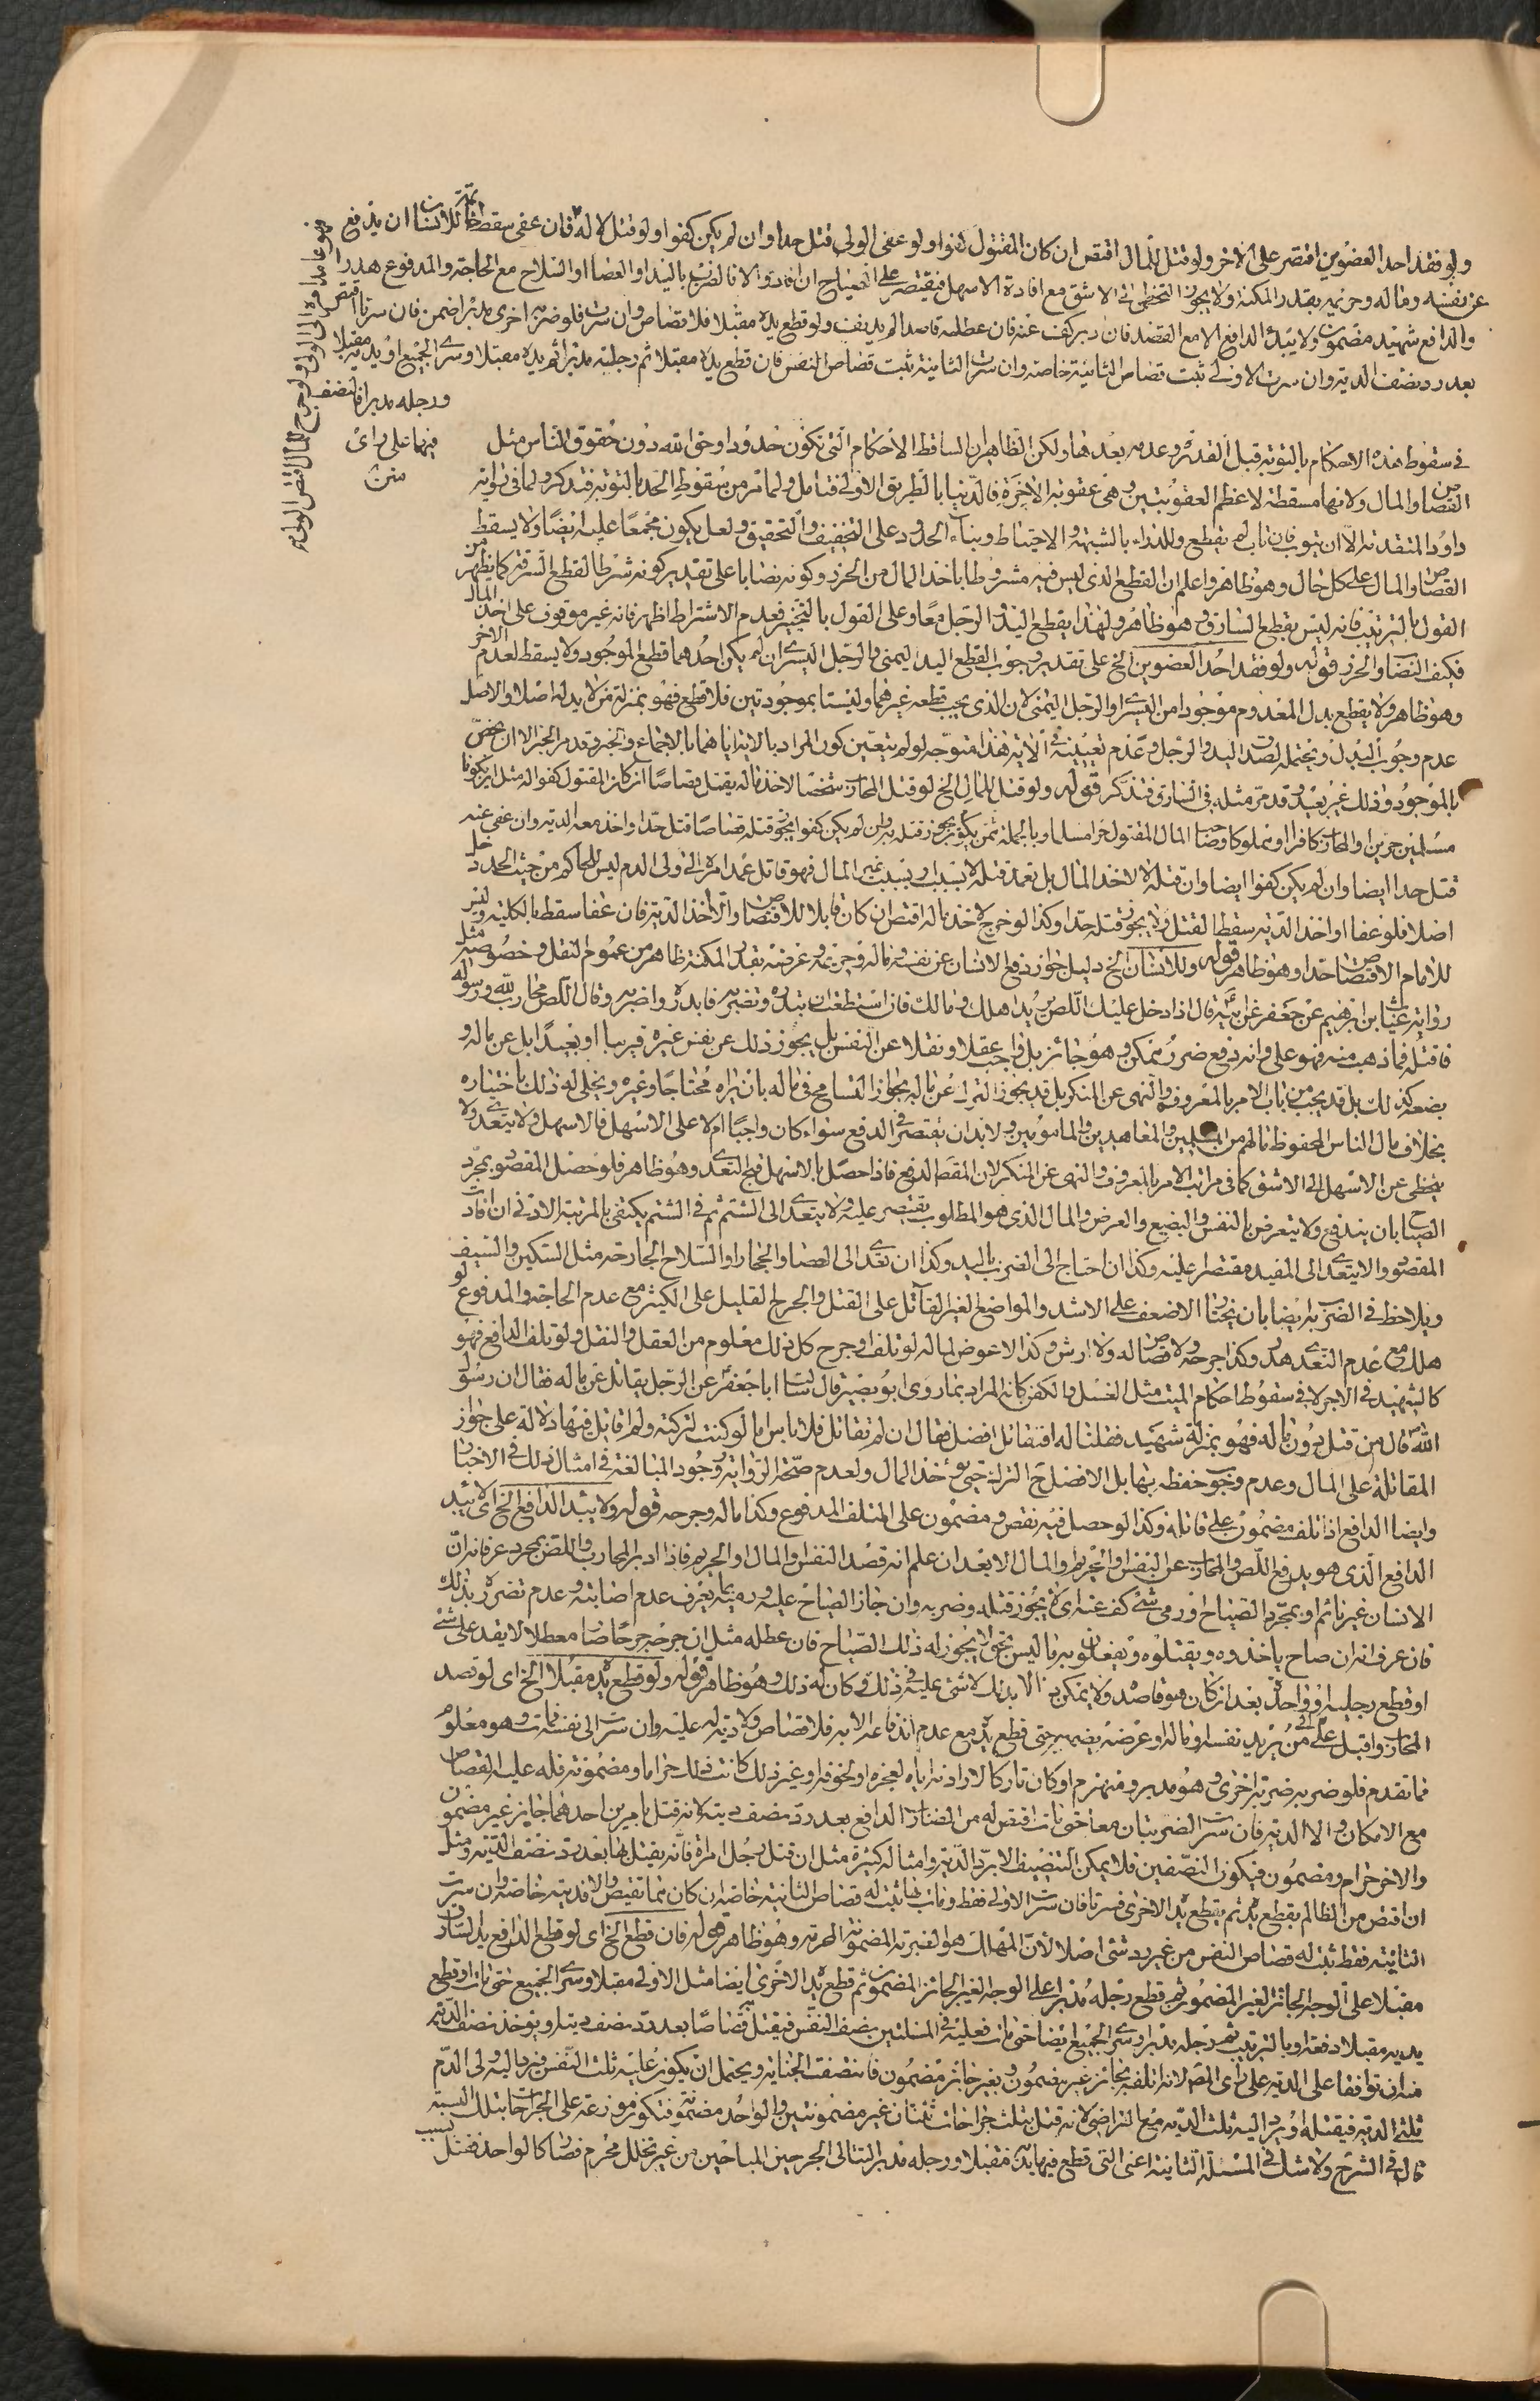 ولو فقد احد العضوين اقتصر على الاخر ولو قتل للمال اقتص ان كان المقتول كفوا ولو عفى الولى قتل حدا وان لم يكن كفوا ولو قتل لا له فان عفى سقط للانسان ان يدفع
عن نفسه وماله وحريمه بقدر المكنة ولا يجوز التخطى الى الاشق مع افادة الاسهل فيقتصر على الصياح ان افاد والا فالضرب باليد او العصا او السلاح مع الحاجة والمدفوع هدر
والدافع شهيد مضمون ولا يبدء الدافع الا مع القصد فان دبر كف عنه فان عطله قاصدا لم يدفف ولو قطع يده مقبلا فلا قصاص وان سرت فلو ضربه اخرى مدبرا ضمن فان سرتا اقتص
بعد رد نصف الدية وان سرت الاولى ثبت قصاص الثانية خاصة وان سرت الثانية ثبت قصاص النفس فان قطع يده مقبلا ثم رجليه مدبرا ثم يده مقبلا وسرى الجميع او يديه مقبلا
ورجله مدبرا فالنصف
فيهما على راى
متن
فى سقوط هذه الاحكام بالتوبة قبل القدرة وعدمه بعدها ولكن الظاهر ان الساقط الاحكام التى تكون حدودا وحق الله دون حقوق الناس مثل
القصاص والمال ولانها مسقطة لاعظم العقوبتين وهى عقوبة الاخرة فالدنيا بالطريق الاولى فتامل ولما مر من سقوط الحد بالتوبة فتذكر ولما فى رواية
داود المتقدمة الا ان يتوب فان تاب لم يقطع وللدراء بالشبهة والاحتياط وبناء الحدود على التخفيف والتحقيق ولعل يكون مجمعا عليه ايضا ولا يسقط
القصاص والمال على كل حال وهو ظاهر واعلم ان القطع الذى ليس فيه مشروطا باخذ المال من الحرز وكونه نصابا على تقدير كونه شرطا لقطع السرقة كما يظهر من
القول بالترتيب فانه ليس بقطع السارق وهو ظاهر ولهذا يقطع اليد والرجل معا وعلى القول بالتخيير فعدم الاشتراط اظهر فانه غير موقوف على اخذ المال
فكيف النصاب والحرز قوله ولو فقد احد العضوين الخ على تقدير وجوب القطع اليد اليمنى والرجل اليسرى ان لم يكن احدهما قطع الموجود ولا يسقط لعدم الاخر
وهو ظاهر ولا يقطع بدل المعدوم موجودا من اليسرى او الرجل اليمنى لان الذى يجب قطعه غيرهما وليستا بموجودتين فلا قطع فهو بمنزلة من لا يد له اصلا والاصل
عدم وجوب البدل ويحتمله لصدق اليد والرجل وعدم تعيينه فى الاية هذا متوجه لو لم يتعين كون المراد بالاية اياهما بالاجماع والخبر وقد مر الخبر الا ان يخص
بالموجود وذلك غير بعيد وقد مر مثله فى السارق فتذكر قوله ولو قتل للمال الخ لو قتل المحارب شخصا لاخذ ماله يقتل قصاصا ان كان المقتول كفوا له مثل ان يكونا
مسلمين حرين او المحارب كافرا او مملوكا وصاحب المال المقتول حرا مسلما وبالجملة ثمن يكون يجوز قتله به وان لم يكن كفوا يجوز قتله قصاصا قتل حدا واخذ معه الدية وان عفى عنه
قتل حدا ايضا وان لم يكن كفوا ايضا وان قتله لا لاخذ المال بل تعمد قتله لا بسبب او بسبب غير المال فهو قاتل عمدا امره الى ولى الدم ليس للحاكم من حيث الحد دخل
اصلا فلو عفا او اخذ الدية سقط القتل ولا يجوز قتله حدا وكذا لو خرج لاخذ ماله اقتص ان كان قابلا للاقتصاص والا اخذ الدية فان عفا سقط بالكلية وليس
للامام الاقتصاص حدا وهو ظاهر قوله وللانسان الخ دليل جواز دفع الانسان عن نفسه وماله وحريمه وعرضه بقدر المكنة ظاهر من عموم النقل وخصوصه مثل
رواية غياث بن ابرهيم عن جعفر عن ابيه قال اذا دخل عليك اللص يريد اهلك ومالك فان استطعت ان تبدره وتضربه فابدره واضربه وقال اللص محارب لله ورسوله
فاقتله فما ذهب منه فهو على وانه دفع ضرر ممكن وهو جائز بل واجب عقلا ونقلا عن النفس بل يجوز ذلك عن نفس غيره قريبا او بعيدا بل عن ماله و
بضعه كذلك بل قد يجب من باب الامر بالمعروف والنهى عن المنكر بل قد يجوز الترك عن ماله بجواز التسامح فى ماله بان يراه محتاجا وغيره ويخلى له ذلك باختياره
بخلاف مال الناس المحفوظ مالهم من المسلمين والمعاهدين والمامونين ولا بد ان يقتصر فى الدفع سواء كان واجبا ام لا على الاسهل فالاسهل ولا يتعدى ولا
يتخطى عن الاسهل الى الاشق كما فى مراتب الامر بالمعروف والنهى عن المنكر لان المقصد الدفع فاذا حصل بالاسهل فيحرم التعدى وهو ظاهر فلو حصل المقصود بمجرد
الصياح بان يندفع ولا يتعرض بالنفس والبضع والعرض والمال الذى هو المطلوب يقتصر عليه ولا يتعدى الى الشتم ثم فى الشتم يكتفى بالمرتبة الادنى ان افادت
المقصود والا يتعدى الى المفيد مقتصرا عليه وكذا ان احتاج الى الضرب باليد وكذا ان تعدى الى العصا والحجارة والسلاح الجارحة مثل السكين والسيف
ويلاحظ فى الضرب به ايضا بان يختار الاضعف على الاشد والمواضع الغير القاتل على القتل والجرح القليل على الكثير مع عدم الحاجة والمدفوع لو
هلك مع عدم التعدى هدر وكذا جرحه ولا قصاص له ولا ارش وكذا لا عوض لماله لو تلف او جرح كل ذلك معلوم من العقل والنقل ولو تلف الدافع فهو
كالشهيد فى الاجر لا فى سقوط احكام الميت مثل الغسل والكفن كانه المراد بما روى ابو بصير قال سالت ابا جعفر عن الرجل يقاتل عن ماله فقال ان رسول
الله قال من قتل دون ماله فهو بمنزلة شهيد فقلنا له افنقاتل افضل فقال ان لم تقاتل فلا باس اما لو كنت لتركته ولم اقاتل فيها دلالة على جواز
المقاتلة على المال وعدم وجوب حفظه بها بل الافضل ح الترك حتى يؤخذ المال ولعدم صحة الرواية وجود المبالغة فى امثال ذلك فى الاخبار
وايضا الدافع اذا تلف مضمون على قاتله وكذا لو حصل فيه نقص مضمون على المتلف المدفوع وكذا ماله وجرحه قوله ولا يبدا الدافع الخ اى لا يبد
الدافع الذى هو يدفع اللص والمحارب عن النفس والحريم والمال الا بعد ان علم انه قصد النفس والمال او الحريم فاذا ادبر المحارب واللص بمجرد عرفانه ان
الانسان غير نائم او بمجرد الصياح او رمى شئ كف عنه اى لا يجوز قتله وضربه وان جاز الصياح عليه ورميه بما يعرف عدم اصابته وعدم تضرره بذلك
فان عرف انه ان صاح ياخذوه ويقتلوه ويفعلون به ما ليس يجوز لا يجوز له ذلك الصياح فان عطله مثل ان جرحه جرحا صار معطلا لا يقدر على شئ
او قطع رجليه او واحدة بعد ان كان هو قاصد ولا يمكن دفعه الا بذلك لا شئ عليه فى ذلك وكان له ذلك وهو ظاهر قوله ولو قطع يده مقبلا الخ اى لو قصد
المحارب واقبل على من يريد نفسه وماله وعرضه يضربه حتى قطع يده مع عدم اندفاعه الا به فلا قصاص ولا دية له عليه وان سرت الى نفسه فمات وهو معلوم
مما تقدم فلو ضربه ضربة اخرى وهو مدبر ومنهزم او كان تاركا لارادته اياه لعجزه او لخوفه او غير ذلك كانت ذلك حراما ومضمونة فله عليه القصاص
مع الامكان والا الدية فان سرت الضربتان معا حتى مات اقتص له من الضارب الدافع بعد رد نصف دية لانه قتل بامرين احدهما جايز غير مضمون
والاخر حرام ومضمون فيكون النصفين فلا يمكن التنصيف الا برد الدية وامثاله كثيرة مثل ان قتل رجل امراة فانه يقتل بها بعد رد نصف الدية ومثل
ان اقتص من الظالم بقطع يده ثم يقطع يد الاخرى فسرتا فان سرت الاولى فقط ومات بها ثبت له قصاص الثانية خاصة ان كان مما تقيض والا فدية خاصة وان سرت
الثانية فقط ثبت له قصاص النفس من غير رد شئ اصلا لان المهلك هو الضربة المضمونة المحرمة وهو ظاهر قوله فان قطع الخ اى لو قطع الدافع يد السارق
مقبلا على الوجه الجائز الغير المضمون ثم قطع رجله مدبرا على الوجه الغير الجائز المضمون ثم قطع يد الاخرى ايضا مثل الاولى مقبلا وسرى الجميع حتى مات او قطع
يديه مقبلا دفعة او بالترتيب ثم رجله مدبرا وسرى الجميع ايضا حتى مات فعليه فى المسئلتين نصف النفس فيقتل قصاصا بعد رد نصف ديته او يؤخذ نصف الدية
منه ان توافقا على الدية على راى المصنف لانه اتلف بجائز غير مضمون وبغير جائز مضمون فانتصفت الجناية ويحتمل ان يكون عليه ثلث النفس فيرد اليه ولى الدم
ثلثى الدية فيقتله او يرد اليه ثلث الدية مع التراضى لانه قتل بثلث جراحات ثنتان غير مضمونتين والواحد مضمونة فيكون موزعة على الجراحات بتلك النسبة
قال فى الشرح ولا شك فى المسئلة الثانية اعنى التى قطع فيها يديه مقبلا ورجله مدبرا لتتالى الجرحين المباحين من غير تخلل محرم فصارا كالواحد فقتل بسبب